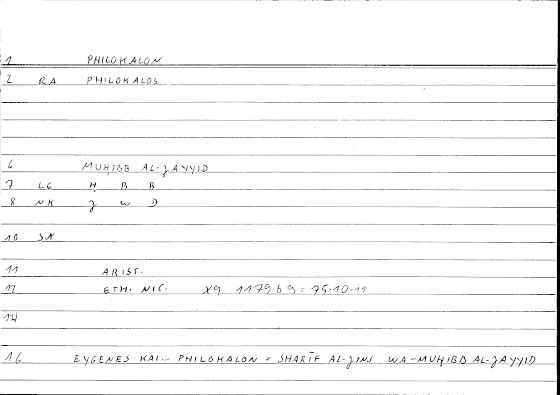 1 PHILOKALON
2 RA PHILOKALOS
6 MUḤIBB AL-JAYYID
7 LC Ḥ B B
8 NK J W D
10 SK
11 ARIST.
12 ETH. NIC. X9 1179 b 9 = 75.10-11
14
16 EYGENES KAI.. PHILOKALON = SHARĪF AL-JINS WA-MUḤIBB AL-JAYYID